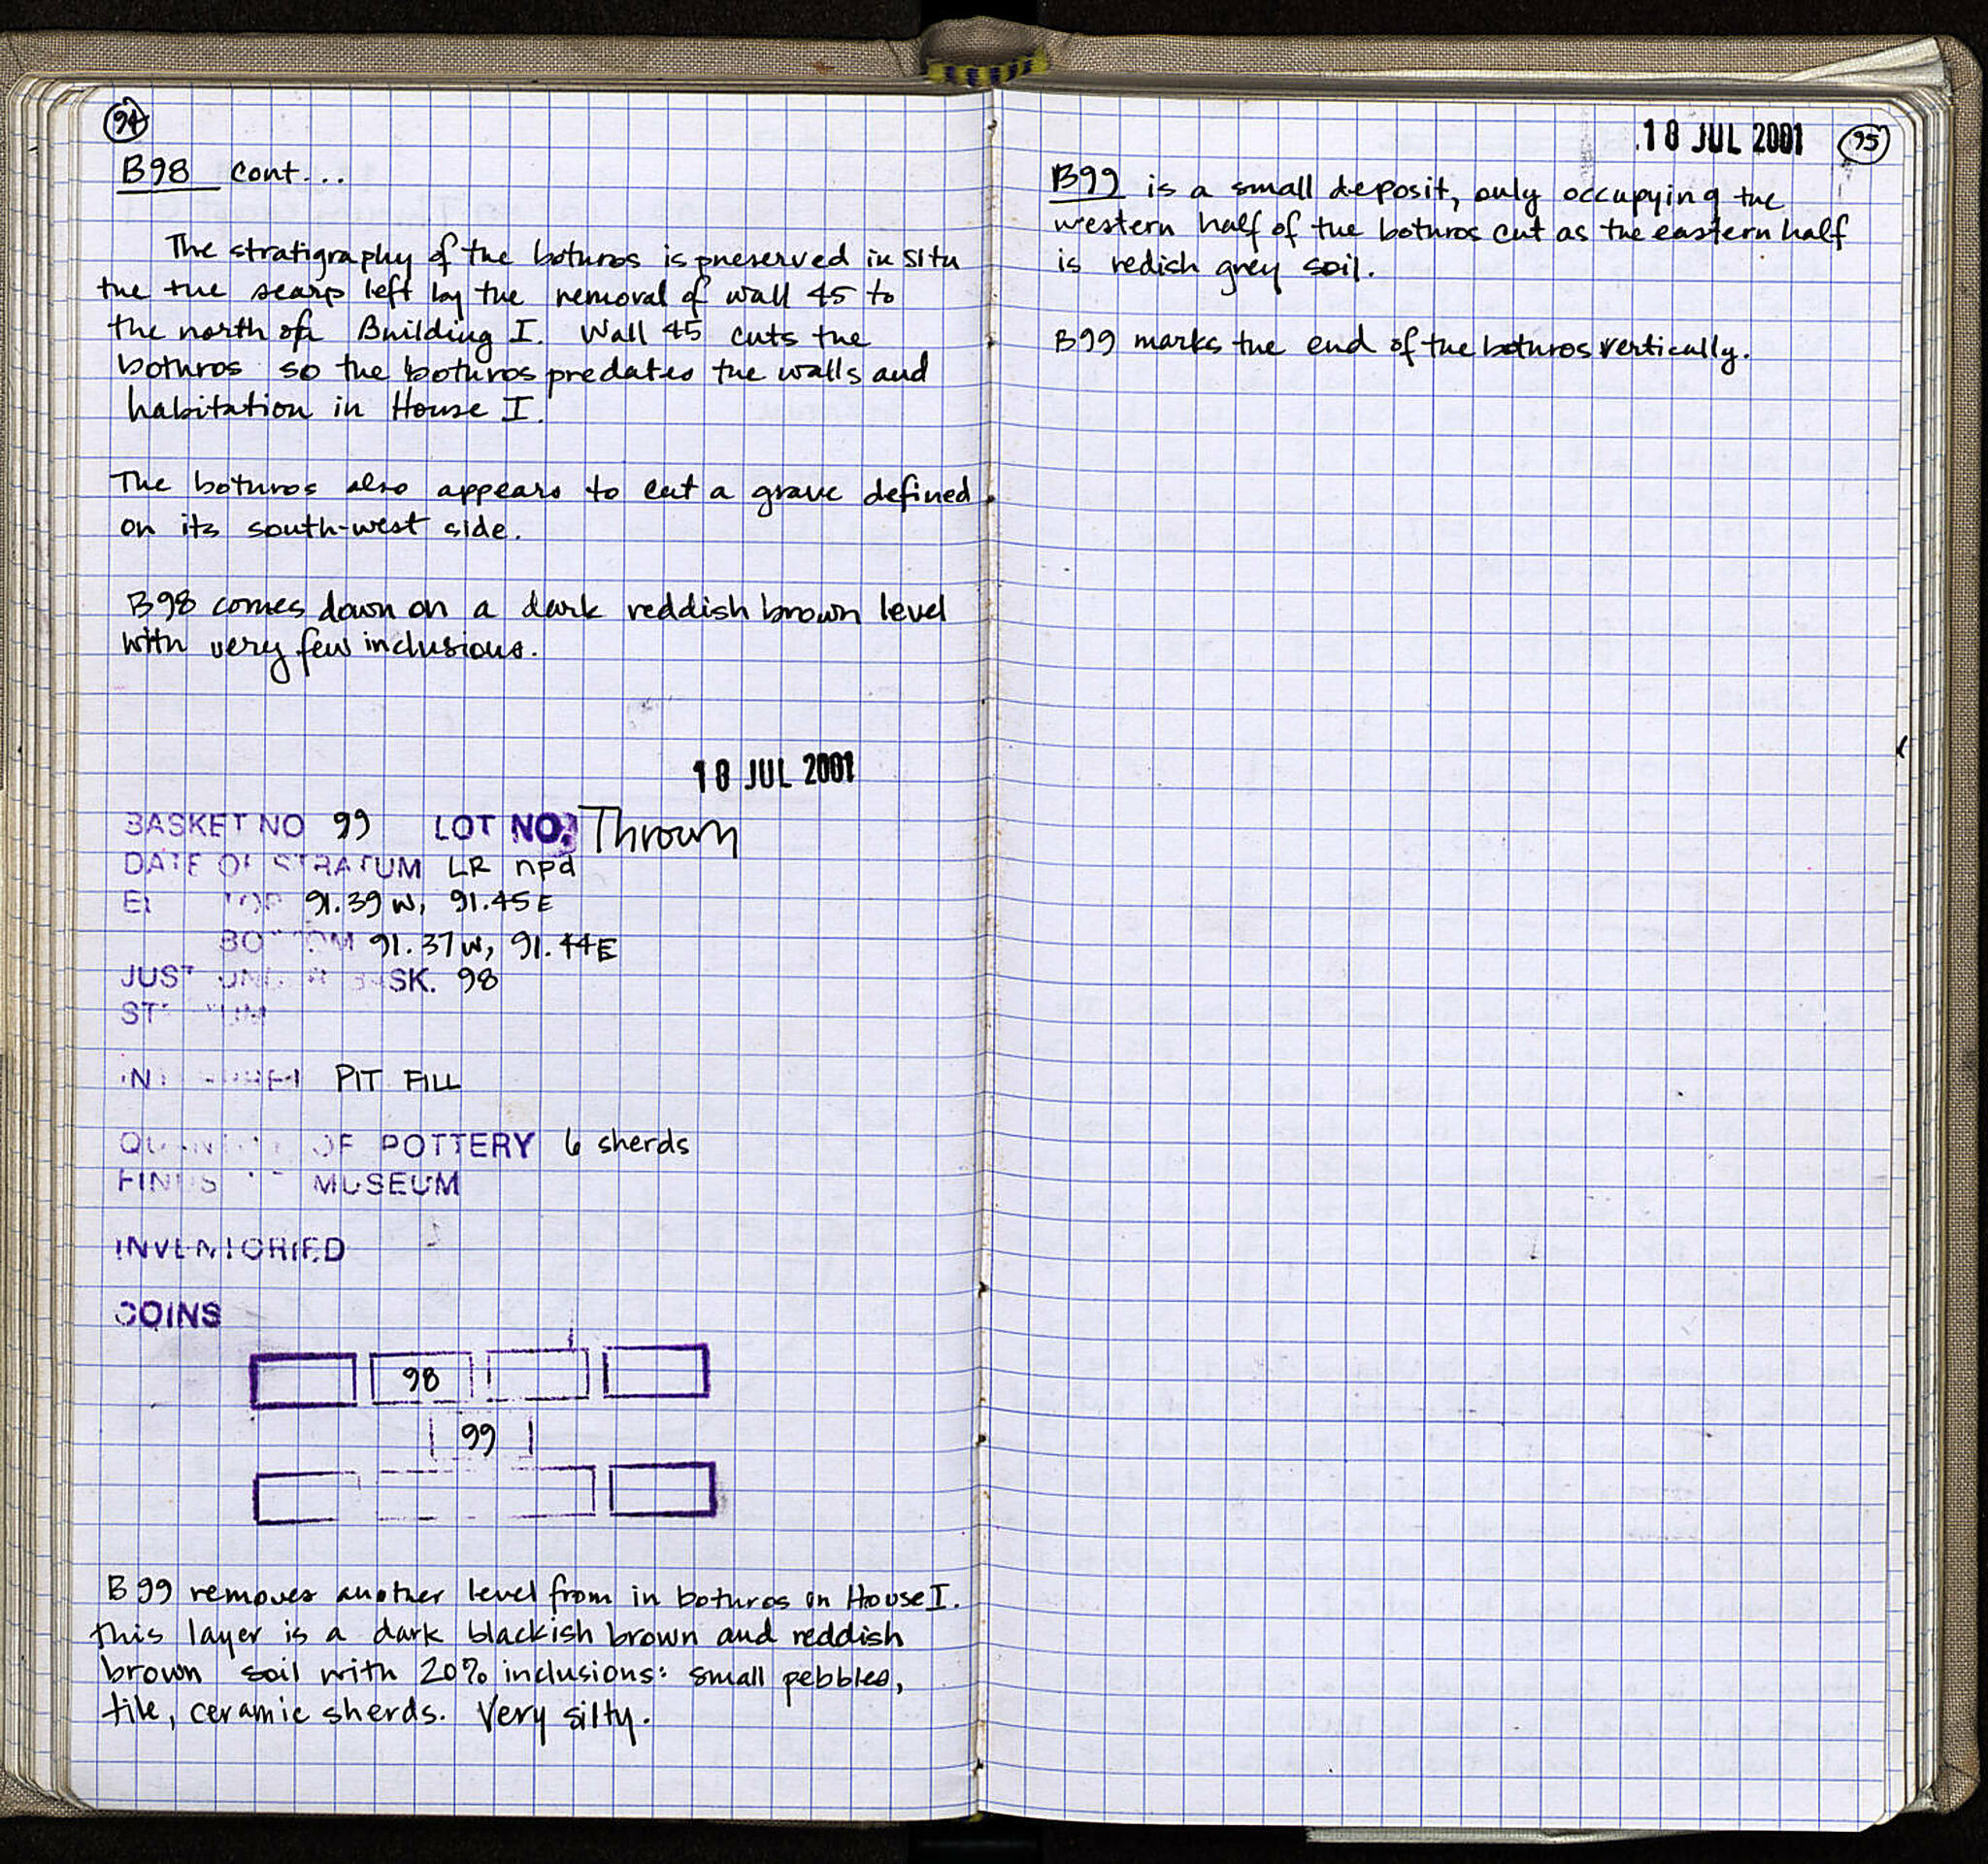 94
B98 cont...
The stratigraphy of the bothros is preserved in situ
the the scarp left by the removal of wall 45 to
the north of Building I. Wall 45 cuts the
bothros so the bothros predates the walls and
habitation in House I.
The bothros also appears to cut a grave defined
on its south-west side.
B98 comes down on a dark reddish brown level
with very few inclusions.
18 JUL 2001
BASKET NO 99 LOT NO. Thrown
DATE OF STRATUM LR npd
TOP 91.39 W, 91.45 E
BOTTOM 91.37 W, 91.44 E
JUST UNDER BASK. 98
STRATUM
PIT FILL
QUANTITY OF POTTERY 6 sherds
FINDS MUSEUM
INVENTORIED
COINS
98
99
B99 removes another level from in bothros in House I.
this layer is a dark blackish brown and reddish
brown soil with 20% inclusions: small pebbles,
tile, ceramic sherds. Very silty.
18 JUL 2001 95
B99 is a small deposit, only occupying the
western half of the bothros cut as the eastern half
is redish grey soil.
B99 marks the end of the bothros vertically.